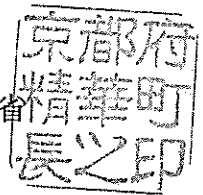 京都府
精華町
長之印
省